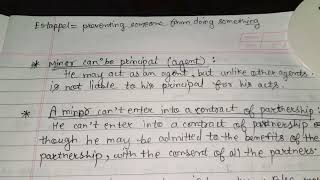 Estappel = preventing someone from doing something
* Minor can be principal (agent) :
He may act as an agent, but unlike other agents
is not liable to his principal for his acts.
* A minor can't enter into a contract of partnership:
He can't enter into a contract of partnership
though he may be admitted to the benefits of the
partnership, with the consent of all the partners.